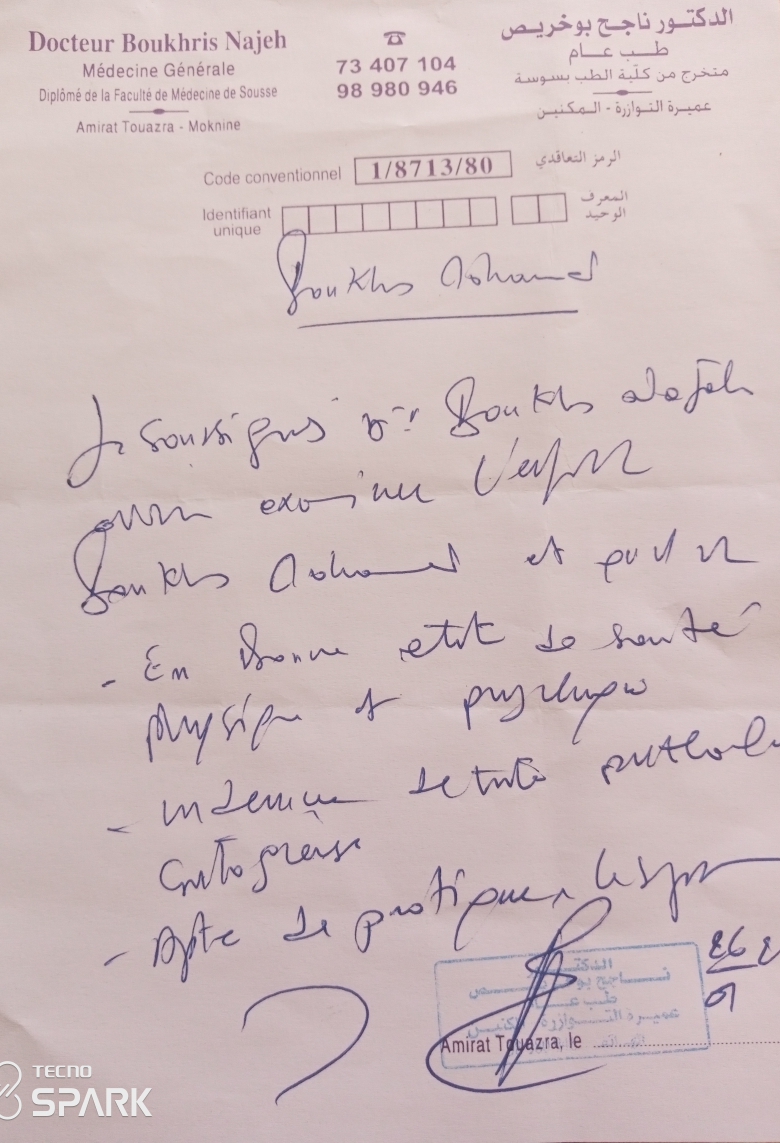 Docteur Boukhris Najeh
Médecine Générale
Diplômé de la Faculté de Médecine de Sousse
Amirat Touazra - Moknine
73 407 104
98 980 946
الدكتور ناجح بوخريص
طب عام
متخرج من كلية الطب بسوسة
عميرة التوازرة - المكنين
Code conventionnel 1/8713/80 الرمز التعاقدي
Identifiant unique المعرف الوحيد
Boukhs
Je soussigné Dr Boukhs Najeh
avoir examiner l'enfant
Boukhs et qu'il est
- En bonne etat de santé
physique et psychique
- indemne de toute
contagieuse
- Apte de pratiquer le sport
الدكتور
ناجح بوخريص
طب عام
عميرة التوازرة المكنين
Amirat Touazra, le
TECNO
SPARK